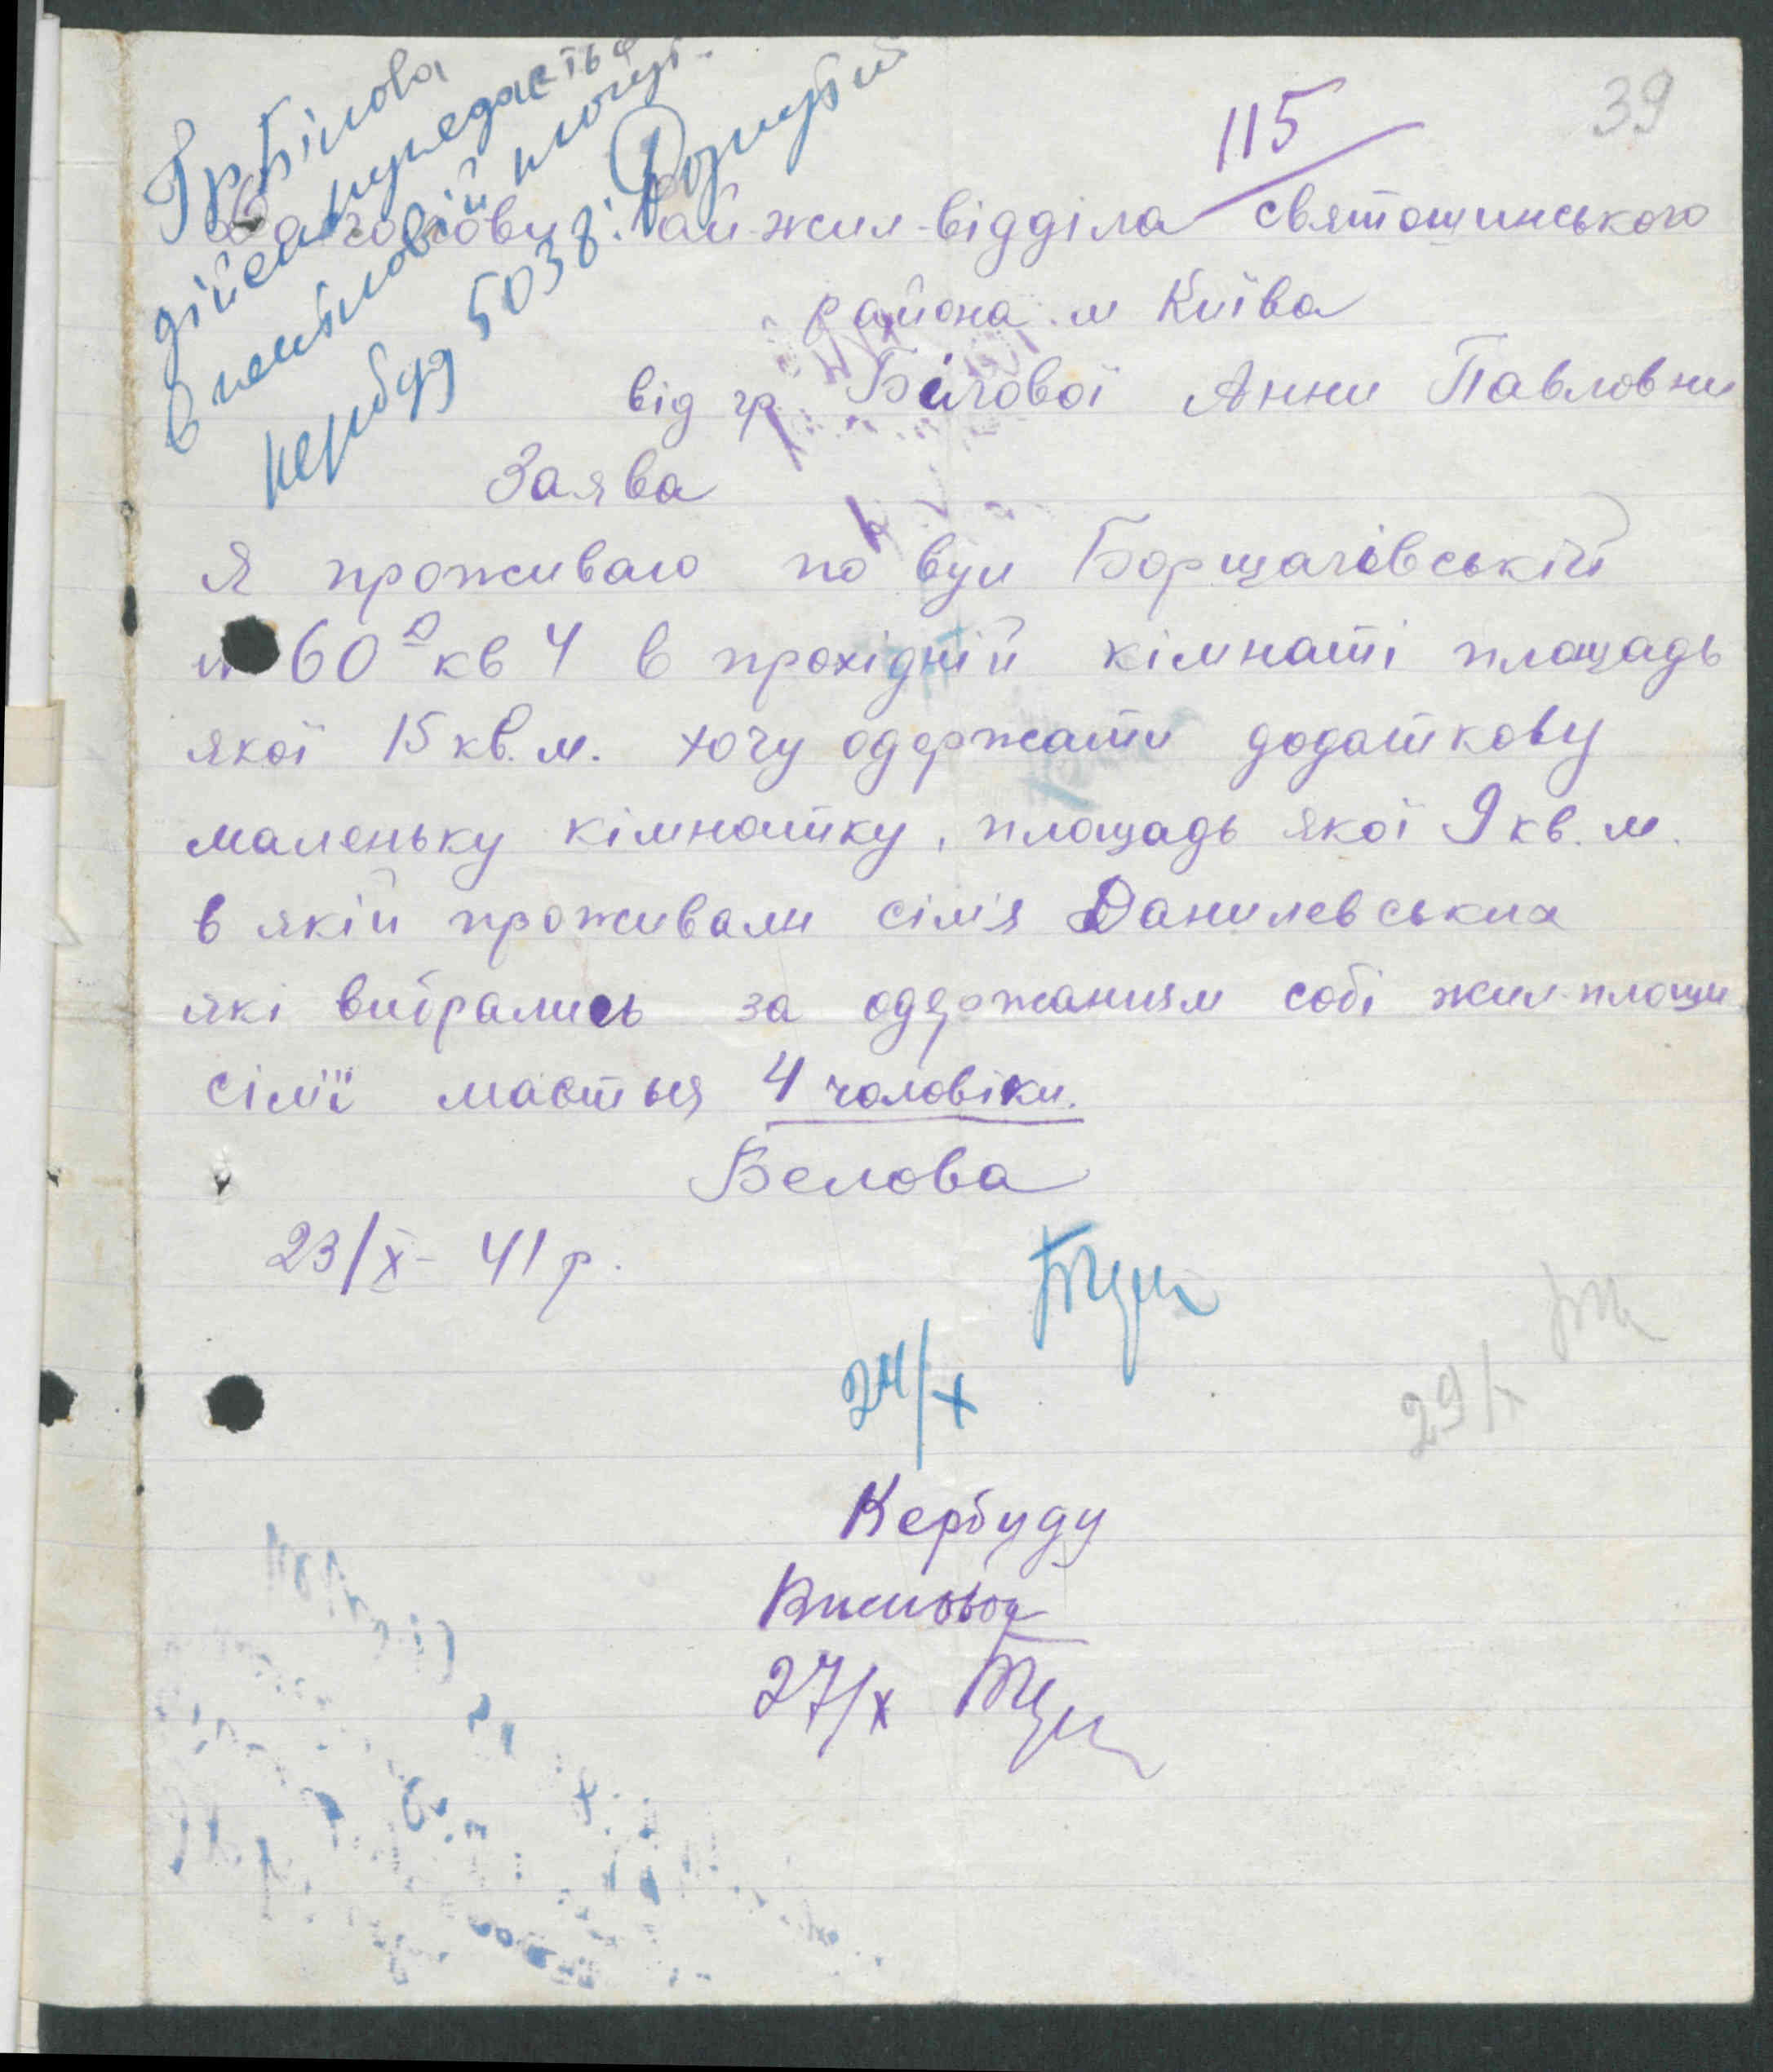 39
115
Гр Білова
дійсн нуждається
в житловій площі.
Кербуд 5038:
голови Рай-жил-відділа святошинського
района м Київа
від гр. Білової Анни Павловни
Заява
Я проживаю по вул Борщагівській
№ 60а кв 4 в прохідній кімнаті площадь
якої 15 кв. м. хочу одержати додаткову
маленьку кімнатку, площадь якої 9 кв. м.
в якій проживали сімя Данилевських
які вибрались за одержанням собі жил-площи
сімїї маеться 4 чоловіки.
Белова
23/X - 41 р.
24/X
29/X
Кербуду
27/X